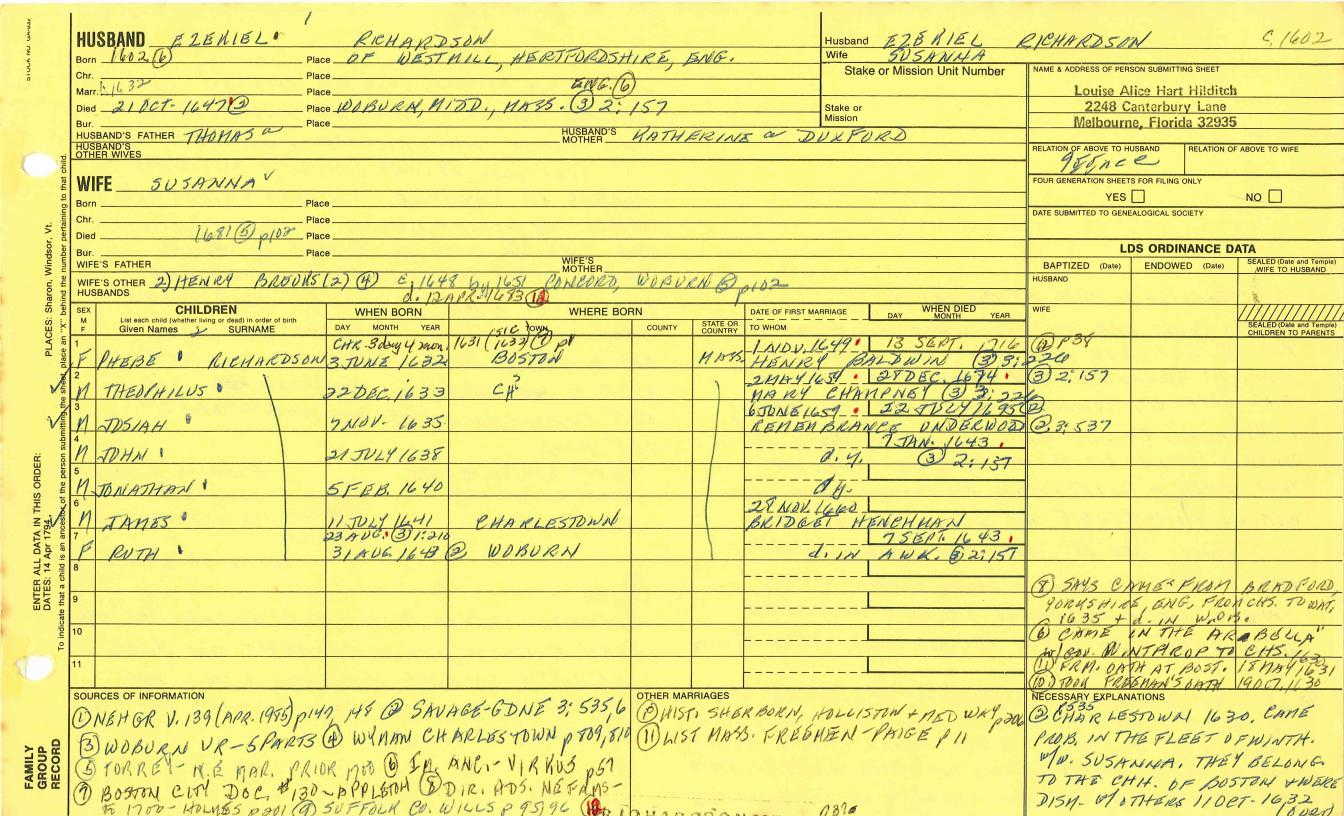 HUSBAND EZEKIEL RICHARDSON
Born 1602 (6) Place OF WESTMILL, HERTFORDSHIRE, ENG.
Chr. Place ENG. (6)
Marr. 1632 Place
Died 21 OCT. 1647 (3) Place WOBURN, MIDD., MASS. (3) 2:157
Bur. Place
HUSBAND'S FATHER THOMAS HUSBAND'S MOTHER KATHERINE DUXFORD
HUSBAND'S OTHER WIVES
Husband EZEKIEL RICHARDSON C. 1602
Wife SUSANNA
Stake or Mission Unit Number
Stake or Mission
NAME & ADDRESS OF PERSON SUBMITTING SHEET
Louise Alice Hart Hilditch
2248 Canterbury Lane
Melbourne, Florida 32935
RELATION OF ABOVE TO HUSBAND RELATION OF ABOVE TO WIFE
FOUR GENERATION SHEETS FOR FILING ONLY
YES NO
DATE SUBMITTED TO GENEALOGICAL SOCIETY
WIFE SUSANNA
Born Place
Chr. Place
Died 1681 (5) p102 Place
Bur. Place
WIFE'S FATHER WIFE'S MOTHER
WIFE'S OTHER HUSBANDS 2) HENRY BROOKS (2) (4) c. 1648 by 1651 CONCORD, WOBURN (5) p102
d. 12 APR. 1683
LDS ORDINANCE DATA
BAPTIZED (Date) ENDOWED (Date) SEALED (Date and Temple) WIFE TO HUSBAND
HUSBAND
WIFE
SEALED (Date and Temple) CHILDREN TO PARENTS
SEX M F
CHILDREN
List each child (whether living or dead) in order of birth
Given Names SURNAME
WHEN BORN
DAY MONTH YEAR
WHERE BORN
TOWN COUNTY STATE OR COUNTRY
DATE OF FIRST MARRIAGE
TO WHOM
WHEN DIED
DAY MONTH YEAR
1 CHR. 3 day 4 mon. 1631 (1632) (7) p1 1 NOV. 1649 13 SEPT. 1716 p38
F PHEBE RICHARDSON 3 JUNE 1632 BOSTON MASS. HENRY BALDWIN (3) 3:226
2 2 MAY 1654 28 DEC. 1674 (3) 2:157
M THEOPHILUS 22 DEC. 1633 CH? MARY CHAMPNEY (3) 3:226
3 6 JUNE 1659 22 JULY 1695 (2)
M JOSIAH 7 NOV. 1635 REMEMBRANCE UNDERWOOD (2) 3:537
4 7 JAN. 1643
M JOHN 21 JULY 1638 d.y. (3) 2:157
5
M JONATHAN 5 FEB. 1640 d.y.
6 28 NOV. 1660
M JAMES 11 JULY 1641 CHARLESTOWN BRIDGET HENCHMAN
7 23 AUG. (3) 1:210 7 SEPT. 1643
F RUTH 31 AUG 1643 (2) WOBURN d. in A WK. (3) 2:157
8
9
10
11
(8) SAYS CAME FROM BRADFORD,
YORKSHIRE, ENG, FROM CHS. TO WAT,
1635 + d. IN WOB.
(6) CAME IN THE "ARABELLA"
w/ GOV. WINTHROP TO CHS. 1630
(11) FRM. OATH AT BOST. 18 MAY 1631
(10) TOOK FREEMAN'S OATH 19 OCT. 1630
SOURCES OF INFORMATION
(1) NEHGR V. 139 (APR. 1985) p147, 148 (2) SAVAGE-GDNE 3; 535,6
(3) WOBURN VR-5 PARTS (4) WYMAN CHARLESTOWN p 809, 810
(5) TORREY-N.E. MAR. PRIOR 1700 (6) IM. ANC.-VIRKUS p57
(7) BOSTON CITY DOC, #130-APPLETON (8) DIR. ADS. NE FAMS-
1700-HOLMES p201 (9) SUFFOLK CO. WILLS p 95, 96
OTHER MARRIAGES
HIST. SHERBORN, HOLLISTON + MEDWAY
(11) LIST MASS. FREEMEN-PAIGE p 11
NECESSARY EXPLANATIONS
(2) p535 CHARLESTOWN 1630. CAME
PROB. IN THE FLEET OF WINTH.
w/w. SUSANNA. THEY BELONG
TO THE CHH. OF BOSTON + WERE
DISM. w/ OTHERS 11 OCT. 1632
FAMILY GROUP RECORD
ENTER ALL DATA IN THIS ORDER:
DATES: 14 Apr 1794
PLACES: Sharon, Windsor, Vt.
To indicate that a child is an ancestor of the person submitting the sheet, place an "X" behind the number pertaining to that child.